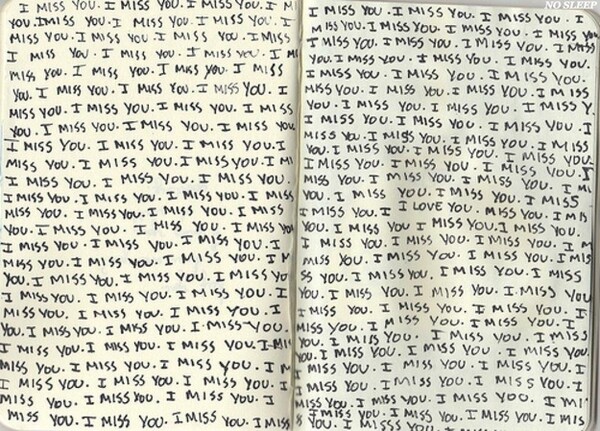 I MISS YOU. I MISS YOU. I MISS YOU. I M
YOU. I MISS YOU. I MISS YOU. I MISS
MISS YOU. I MISS YOU. I MISS YOU. I MISS
I MISS YOU. I MISS YOU. I MISS YOU. I M
MISS YOU. I MISS YOU. I MISS YOU. I MISS
YOU. I MISS YOU. I MISS YOU. I MISS YOU. I
MISS YOU. I MISS YOU. I MISS YOU. I MISS
YOU. I MISS YOU. I MISS YOU. I MISS YOU.
I MISS YOU. I MISS YOU. I MISS YOU. I
MISS YOU. I MISS YOU. I MISS YOU. I MI
I MISS YOU. I MISS YOU. I MISS YOU. I
MISS YOU. I MISS YOU. I MISS YOU. I MISS
MISS YOU. I MISS YOU. I MISS YOU. I MISS
YOU. I MISS YOU. I MISS YOU. I MISS YOU.
I MISS YOU. I MISS YOU. I MISS YOU. I
MISS YOU. I MISS YOU. I MISS YOU. I M
YOU. I MISS YOU. I MISS YOU. I MISS YOU.
I MISS YOU. I MISS YOU. I MISS YOU. I
MISS YOU. I MISS YOU. I MISS YOU. I
YOU. I MISS YOU. I MISS YOU. I MISS YOU.
I MISS YOU. I MISS YOU. I MISS YOU. I MIS
MISS YOU. I MISS YOU. I MISS YOU. I M
I MISS YOU. I MISS YOU. I MISS YOU. I
MISS YOU. I MISS YOU. I MISS YOU. I M
MISS YOU. I MISS YOU. I MISS YOU. I MISS
NO SLEEP
I MISS YOU. I MISS YOU. I MISS YOU. I
MISS YOU. I MISS YOU. I MISS YOU. I MISS YOU
I MISS YOU. I MISS YOU. I MISS YOU. I MISS
YOU. I MISS YOU. I MISS YOU. I MISS YOU.
I MISS YOU. I MISS YOU. I MISS YOU.
MISS YOU. I MISS YOU. I MISS YOU. I MISS
YOU. I MISS YOU. I MISS YOU. I MISS Y
I MISS YOU. I MISS YOU. I MISS YOU. I
MISS YOU. I MISS YOU. I MISS YOU. I MISS
YOU. I MISS YOU. I MISS YOU. I MISS YOU
I MISS YOU. I MISS YOU. I MISS YOU. I
MISS YOU. I MISS YOU. I MISS YOU. I MI
YOU. I MISS YOU. I MISS YOU. I MISS
I MISS YOU. I I LOVE YOU. MISS YOU. I MIS
YOU. I MISS YOU I MISS YOU. I MISS YOU.
I MISS YOU. I MISS YOU. I MISS YOU. I M
MISS YOU. I MISS YOU. I MISS YOU. I MISS
SS YOU. I MISS YOU. I MISS YOU. I MISS
YOU. I MISS YOU. I MISS YOU. I MISS YOU
I MISS YOU. I MISS YOU. I MISS YOU. I
MISS YOU. I MISS YOU. I MISS YOU. I
YOU. I MISS YOU. I MISS YOU. I MISS
YOU. I MISS YOU. I MISS YOU. I MISS YOU.
MISS YOU. I MISS YOU. I MISS YOU. I
I MISS YOU. I MISS YOU. I MISS YOU. I
MISS YOU. I MISS YOU. I MISS YOU. I MI
I MISS YOU. I MISS YOU. I MISS YOU. I MIS
YOU. I MISS YOU. I MISS YOU. I MISS YOU.